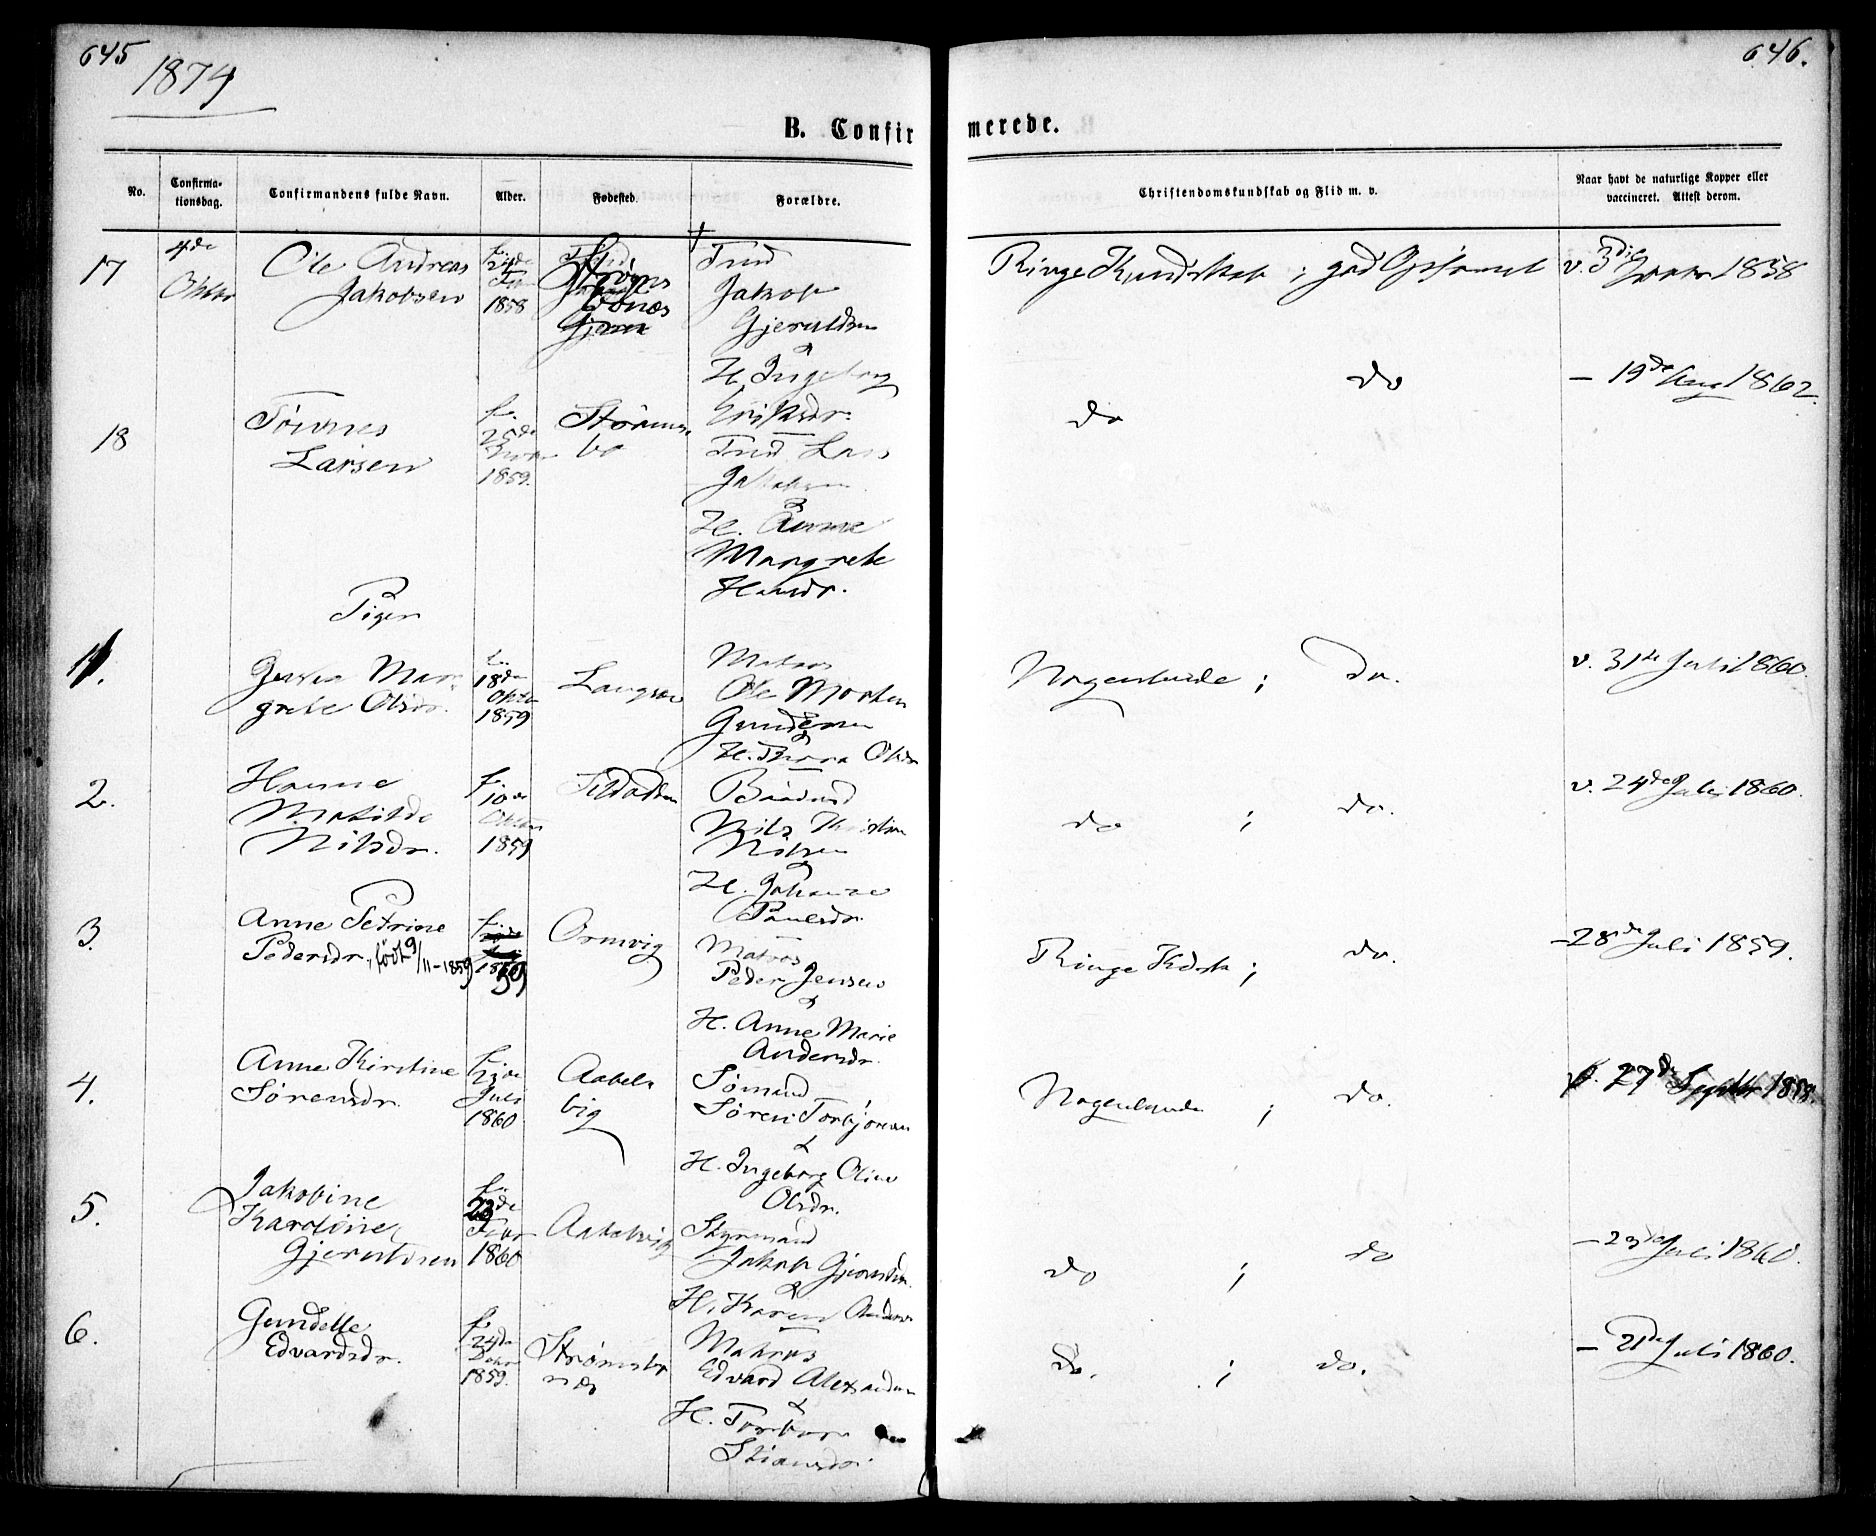 645
1874
646.
B. Confir merede.
No.
Confirma-
tionsdag.
Confirmandens fulde Navn.
Alder.
Fødested.
Forældre.
Christendomskundskab og Flid m. v.
Naar havt de naturlige Kopper eller
vaccineret. Attest derom.
17
4de
Oktbr
Ole Andreas
Jakobsen
f.
1858
Jakob
H. Ingeborg
Ringe Kundskab ; god Opførsel
v. 1858
18
Tønnes
Larsen
f.
25de
1859.
Strøms
bo
Lars
Jakobsen
&
H. Anne
Margrete
Hansdr.
do
do
– 19de Aug 1862.
Piger
1.
Mar-
grete Olsdr.
f.
18de
Oktbr
1859
Matros
Ole Morten
Gundersen
&
H. Olsdr
Nogenlunde ; do.
v. 31te Juli 1860.
2.
Hanne
Matilde
Nilsdr.
f.
10de
Oktbr
1859
Nils Kristian
Nilsen
&
H. Johanne
Paulsdr.
do ; do.
v. 24de Juli 1860.
3.
Anne Petrine
Pedersdr., født 9/11-1859
59
Ormvig
Matros
Peder Jensen
&
H. Anne Marie
Andersdr.
Ringe Kdsk ; do.
– 28de Juli 1859.
4.
Anne Kirstine
Sørensdr.
f.
Juli
1860
Aabels
vig
Sømand
Søren Torbjørnsen
&
H. Ingeborg Oline
Olsdr.
Nogenlunde ; do.
27de
5.
Jakobine
Karoline
f.
1860
Aabelvig
Styrmand
Jakob
&
H. Karen
do ; do
Juli 1860.
6.
Gundelle
Edvardsdr.
f.
24de
Decbr
1859.
Strømsbo
Matros
Edvard Alexandersen
&
H. Torbor
Stiansdr.
do. ; do.
– 21de Juli 1860.